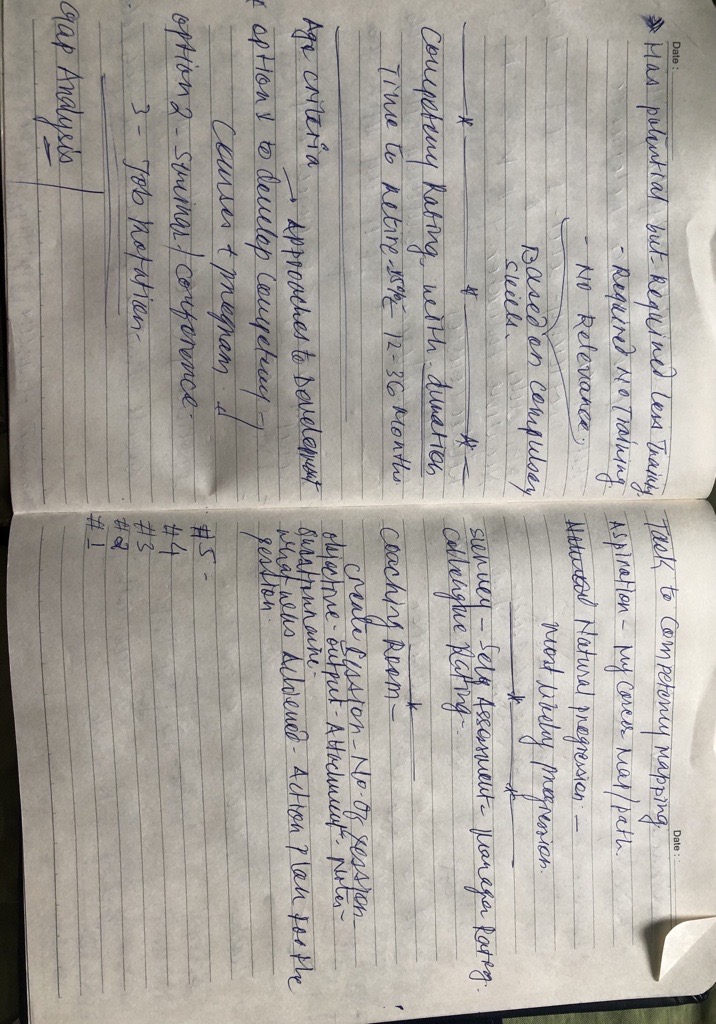 Date :
Has potential but Required Less Training
- Required No Training
- No Relevance.
Based on compulsory
skills.
Competency Rating, with duration
Time to Retire - 12-36 Months
Age criteria
→ Approaches to Development
option 1 to develop competency -
Courses + program
option 2 - Seminar / Conference.
3 - Job Rotation -
Gap Analysis
Date :
Task to Competency mapping
Aspiration - My Career Map/path.
Natural progression -
most likely progression.
survey - Self Assessment - Manager Rating.
Colleague Rating -
Coaching Room -
create session - No. of session -
objective - output - Attachment - Notes -
questionnaire -
what was Achieved - Action Plan for the
session.
#5 -
#4
#3
#2
#1